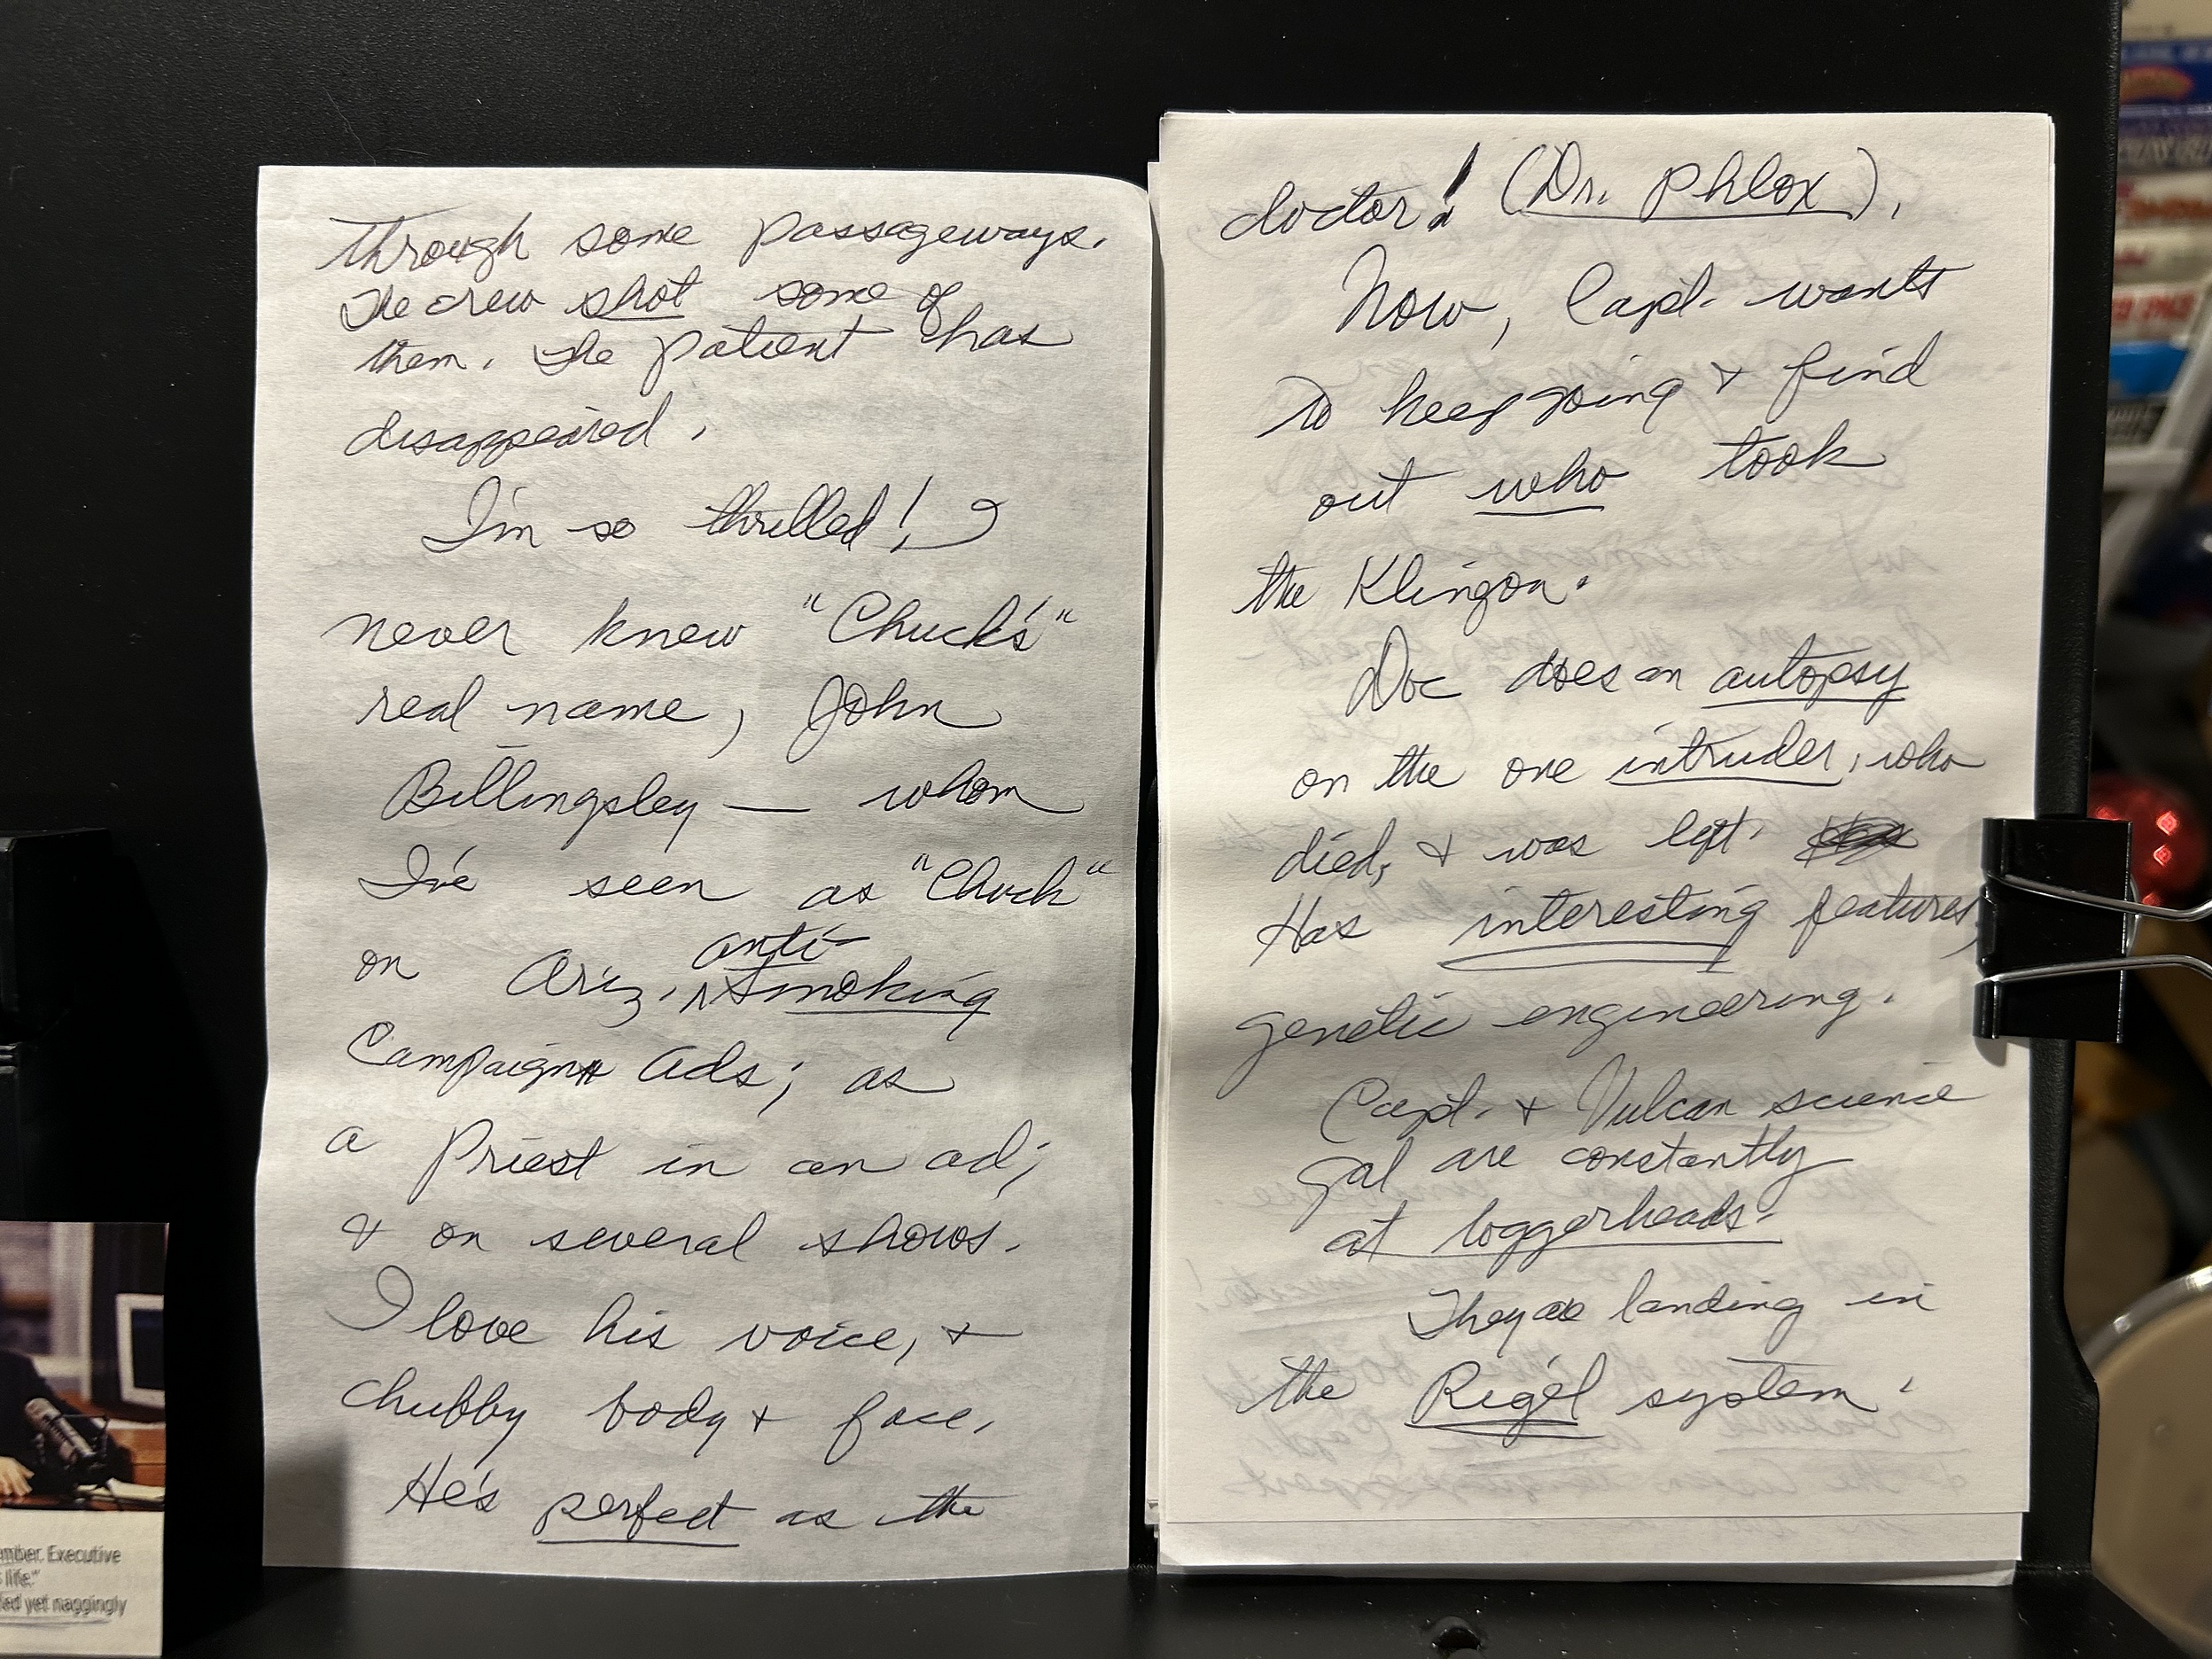 through some passageways.
The crew shot some of
them. The patient has
disappeared.
I'm so thrilled! I
never knew "Chuck's"
real name, John
Billingsley — whom
I've seen as "Chuck"
on Ariz. anti-smoking
Campaign ads; as
a Priest in an ad;
& on several shows.
I love his voice, &
chubby body & face.
He's perfect as the
doctor! (Dr. Phlox).
Now, Capt. wants
to keep going & find
out who took
the Klingon.
Doc does an autopsy
on the one intruder, who
died, & was left.
Has interesting features,
genetic engineering.
Capt. & Vulcan science
gal are constantly
at loggerheads.
They're landing in
the Rigel system.
mber. Executive
life."
ed yet naggingly